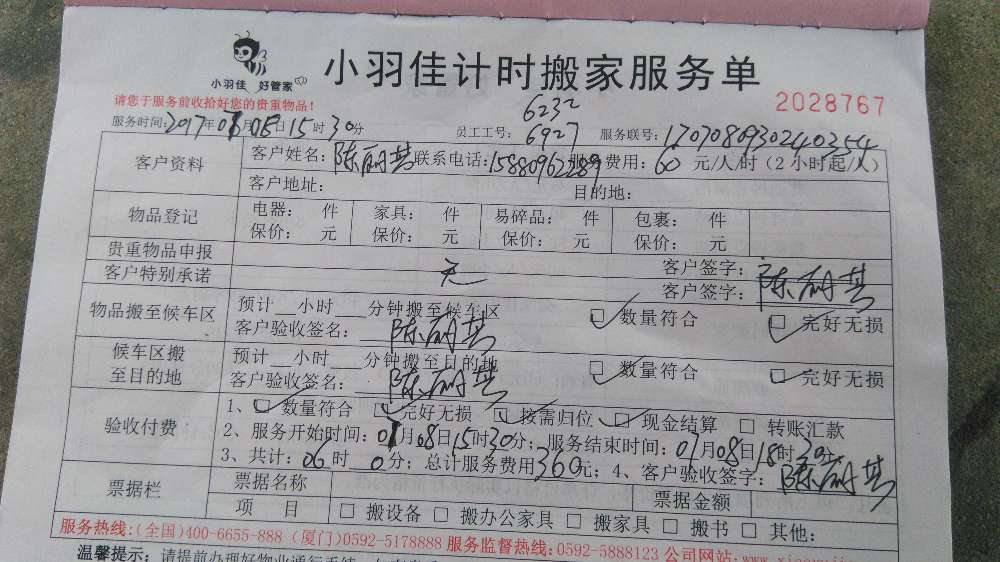 小羽佳 好管家
小羽佳计时搬家服务单
2028767
请您于服务前收拾好您的贵重物品！
6232
服务时间：2017年07月08日15时30分 员工工号：6927 服务联号：170708093024 0354
客户资料 客户姓名：陈丽其 联系电话：15880962289 费用：60 元/人/时（2小时起/人）
客户地址： 目的地：
物品登记 电器： 件 家具： 件 易碎品： 件 包裹： 件
保价： 元 保价： 元 保价： 元 保价： 元
贵重物品申报 客户签字：
客户特别承诺 无 客户签字：陈丽其
物品搬至候车区 预计__小时___分钟搬至候车区 数量符合 完好无损
客户验收签名：陈丽其
候车区搬至目的地 预计__小时___分钟搬至目的地 数量符合 完好无损
客户验收签名：陈丽其
验收付费 1、数量符合 完好无损 按需归位 现金结算 转账汇款
2、服务开始时间：07月08日15时30分；服务结束时间：07月08日18时30分
3、共计：06时0分；总计服务费用360元；4、客户验收签字：陈丽其
票据栏 票据名称 票据金额
项 目 搬设备 搬办公家具 搬家具 搬书 其他:
服务热线:(全国)400-6655-888 (厦门)0592-5178888 服务监督热线:0592-5888123 公司网站:
温馨提示：请提前办理好物业通行手续